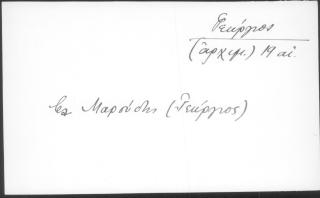 Γεώργιος
(ἀρχιμ.) 19 αἰ.
βλ Μαρούδης (Γεώργιος)